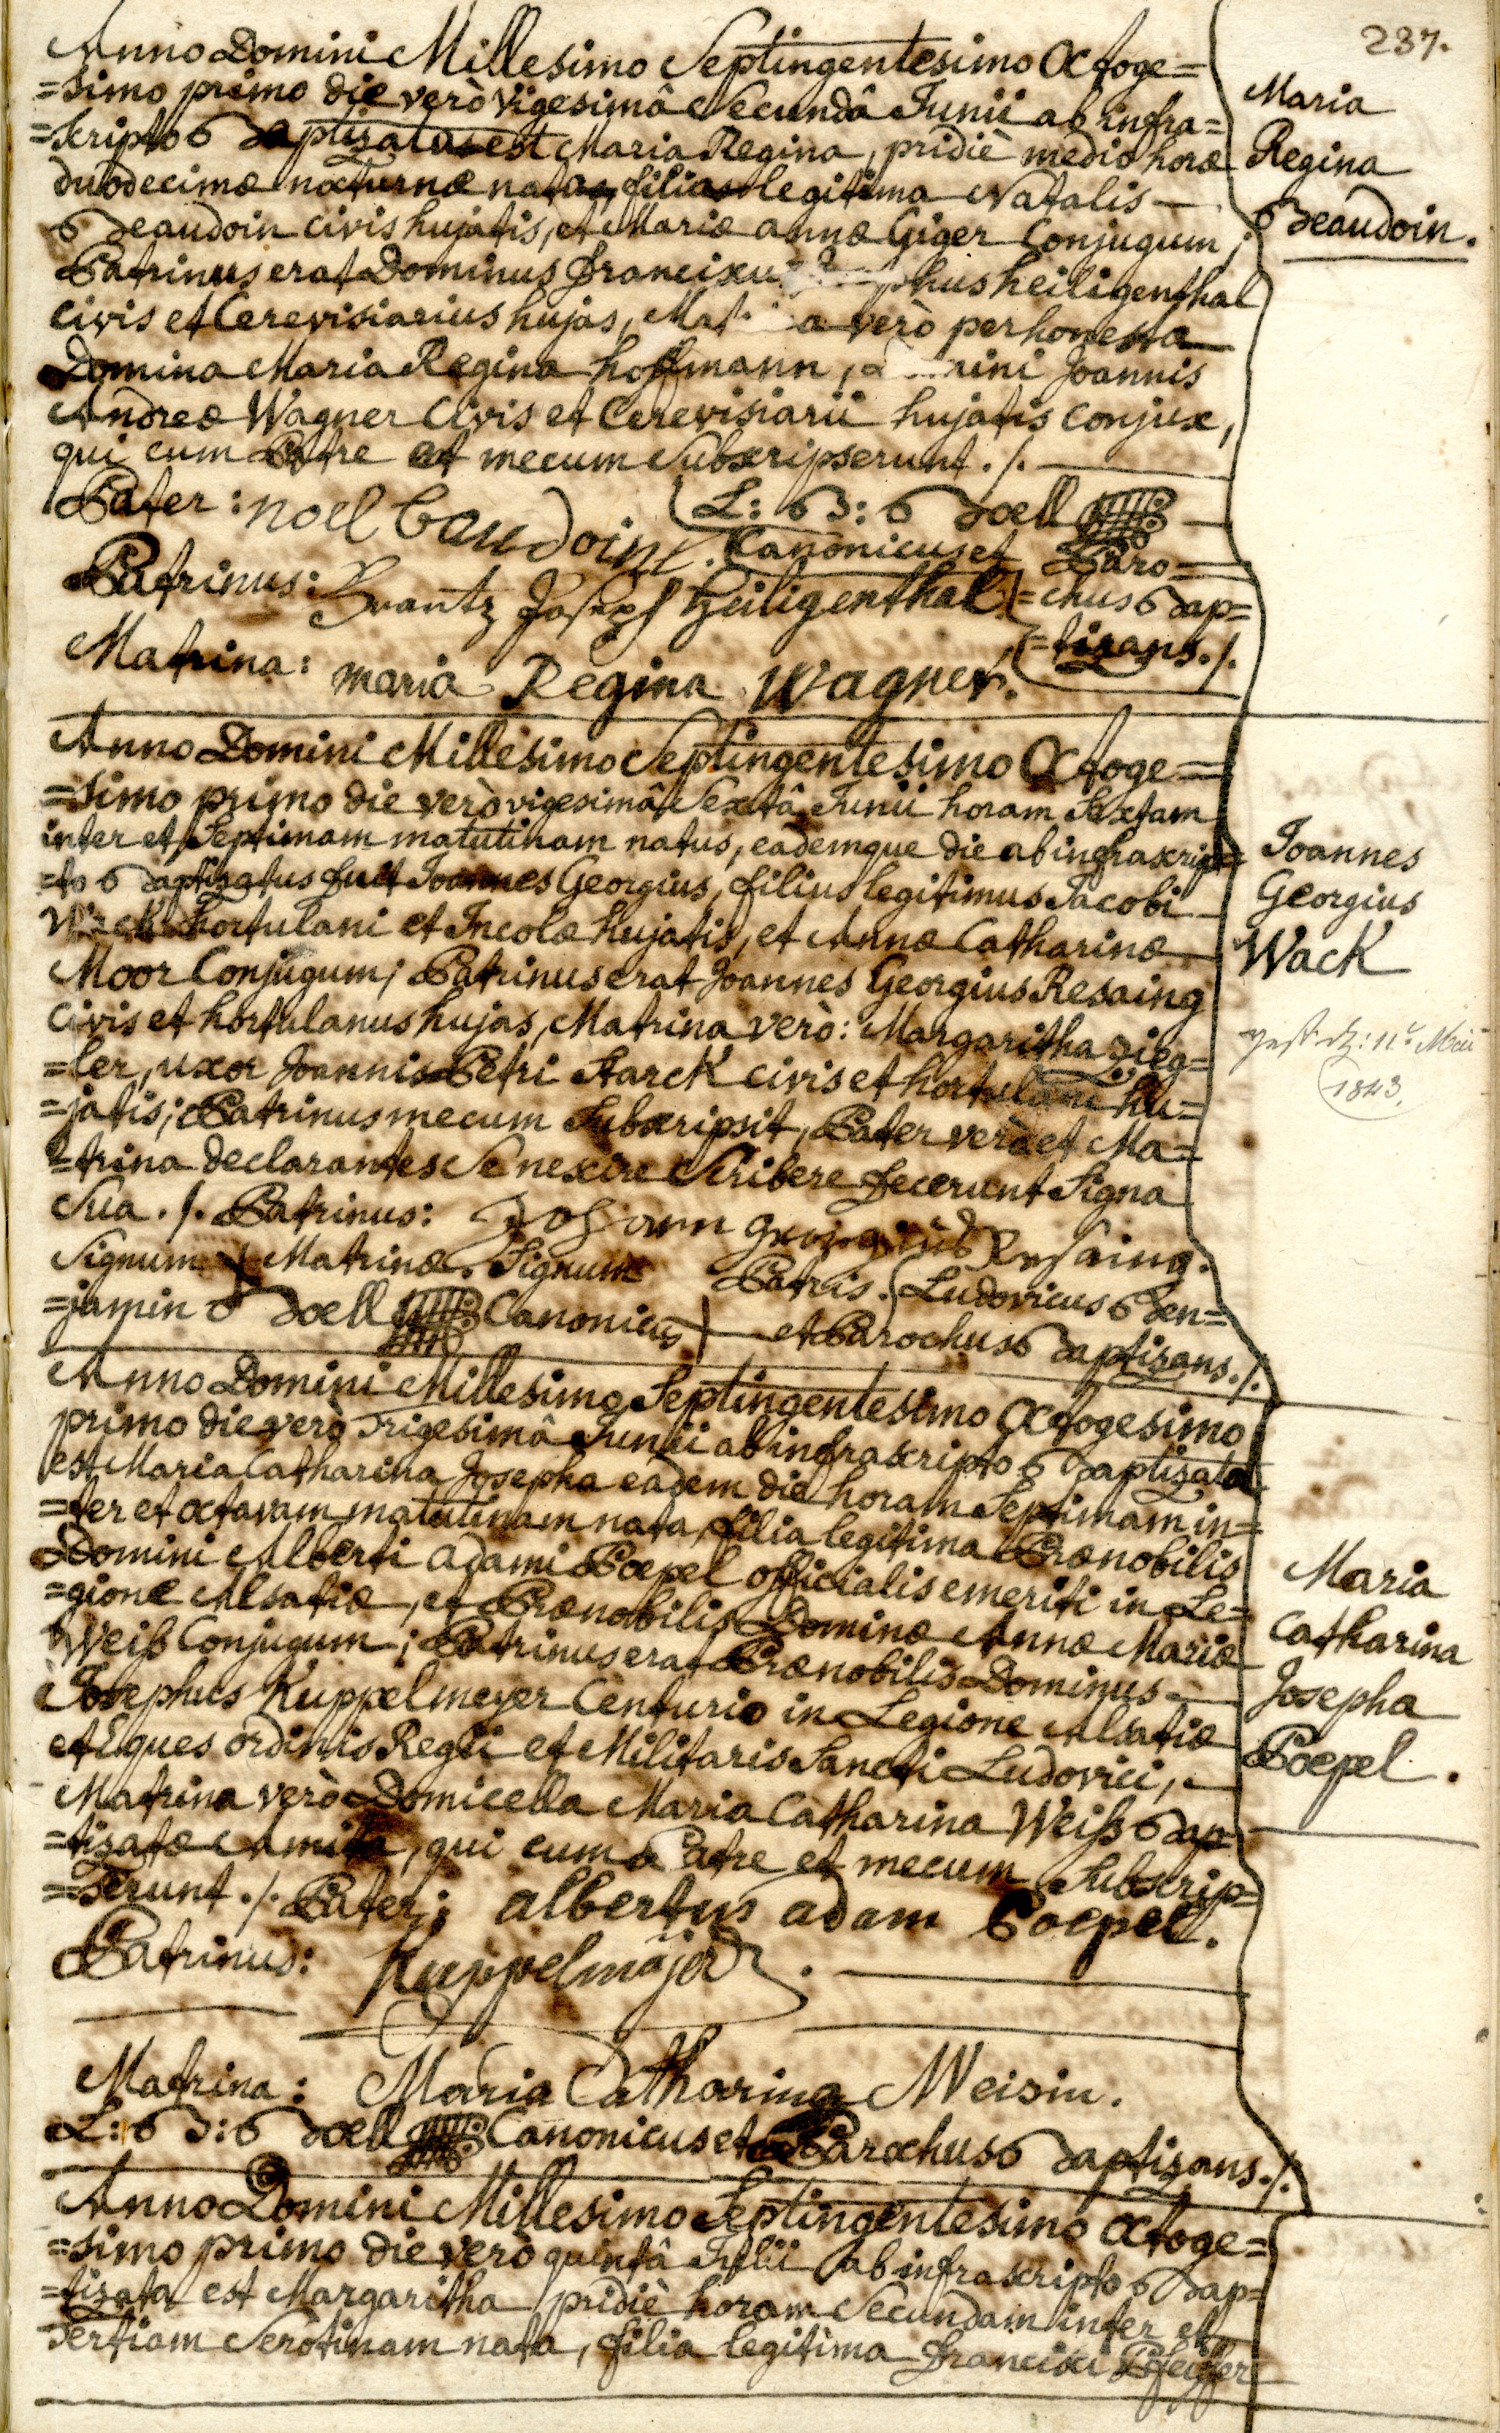 237.
Anno Domini Millesimo Septingentesimo Octoge=
=simo primo die verò vigesimâ Secundâ Junii ab infra=
=scripto Baptizatus est Maria Regina, pridiè medio horæ
duodecimæ nocturnæ nata, filia legitima Natalis
Beaudoin civis hujatis, et Mariæ annæ Giger Conjugum;
Patrinus erat Dominus franciscus phus heiligenthal
civis et Cerevisiarius hujas, Mat a verò perhonesta
Domina Maria Regina hoffmann, ini Joannis
Andreæ Wagner Civis et Cerevisiarii hujatis conjux,
qui cum Patre et mecum Subscripserunt ./.
Maria
Regina
Beaudoin.
Pater: noel baudoin.
L: B: Boell
Canonicus et Paro=
=chus Bap=
=tizans ./.
Patrinus: Frantz Joseph Heiligenthal
Matrina: maria Regina Wagner.
Anno Domini Millesimo Septingentesimo Octoge=
=simo primo die verò vigesimâ Sextâ Junii horam Sextam
inter et Septimam matutinam natus, eâdemque die ab infrascrip=
=to Baptizatus fuit Joannes Georgius, filius legitimus Jacobi
Wack hortulani et Incolæ hujatis, et Annæ Catharinæ
Moor Conjugum; Patrinus erat Joannes Georgius Resaing
civis et hortulanus hujas, Matrina verò: Margaritha Zieg=
=ler, uxor Joannis Petri Starck civis et hortulani hu=
=jatis; Patrinus mecum Subscripsit, Pater verò et Ma=
=trina declarantes Se nescire Scribere fecerunt Signa
Sua ./. Patrinus: Johann georgius Resaing.
Signum + Matrinæ. Signum Patris. Ludovicus Ben=
=jamin Boell Canonicus et Parochus Baptizans ./.
Joannes
Georgius
Wack
1843.
Anno Domini Millesimo Septingentesimo Octogesimo
primo die verò Trigesimâ Junii ab infrascripto Baptizata
est Maria Catharina Josepha eâdem die horam Septimam in=
=ter et octavam matutinam nata, filia legitima Prænobilis
Domini Alberti adami Poepel officialis emeriti in Le=
=gione Alsatiæ, et Prænobilis Dominæ Annæ Mariæ
Weiß Conjugum; Patrinus erat Prænobilis Dominus
Josephus Kuppelmeyer Centurio in Legione Alsatiæ
et Eques ordinis Regii et Militaris Sancti Ludovici,
Matrina verò Domicella Maria Catharina Weiß Bap=
=tizatæ Amita, qui cum Patre et mecum Subscrip=
=serunt ./. Pater: albertus adam Poepel.
Maria
Catharina
Josepha
Poepel.
Patrinus: Kuppelmajer
Matrina: Maria Catharina Weisin.
L: B: Boell Canonicus et Parochus Baptizans ./.
Anno Domini Millesimo Septingentesimo Octoge=
=simo primo die verò quintâ Julii ab infrascripto Bap=
=tizata est Margaritha pridiè horam Secundam inter et
Tertiam Serotinam nata, filia legitima francisci Pfeiffer